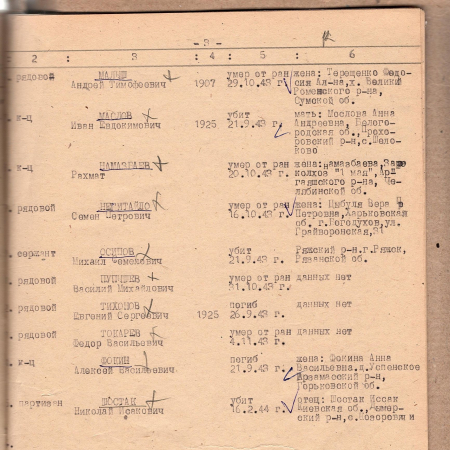 - 3 -
2 : 3 : 4 : 5 : 6
рядовой
Андрей Тимофеевич 1907 умер от ран 29.10.43 г. жена: Терещенко Федо-
сим Ал-на, х. Великий
Роменского р-на,
Сумской об.
к-ц МАСЛОВ убит мать: Мослова Анна
Иван Евдокимович 1925 21.9.43 г. Андреевна,
родская об., Прохо-
ровский р-н, с.
ково
к-ц НАМАЗБАЕВ умер от ран жена:
Рахмат 20.10.43 г. колхоз "1 мая",
р-на, Че-
лябинской об.
рядовой умер от ран жена: Цыбуля Вера
Семен Петрович 16.10.43 г. Петровна, Харьковская
об. г. Богодухов, ул.
Грайворонская,
сержант ОСИПОВ убит Ряжский р-н, г. Ряжск,
Михаил Семенович 21.9.43 г. Рязанской об.
рядовой умер от ран данных нет
Василий Михайлович 31.10.43 г.
рядовой ТИХОНОВ погиб данных нет
Евгений Сергеевич 1925 26.9.43 г.
рядовой ТОКАРЕВ умер от ран данных нет
Федор Васильевич 4.11.43 г.
к-ц ФОКИН погиб жена: Фокина Анна
Алексей Васильевич 21.9.43 г. Васильевна, д. Успенское
Арзамасский р-н,
Горьковской об.
партизан ШОСТАК убит отец: Шостак Иссак
Николай Исакович 16.2.44 г. Киевская об.,
ский р-н,